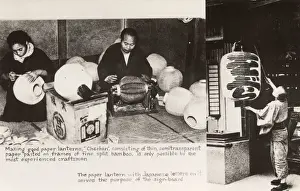 Making good paper lanterns, "Chochin", consisting of thin, semitransparent
paper pasted on frames of fine split bamboo, is only possible to the
most experienced craftsmen.
The paper lantern with Japanese letters well
serves the purpose of the sign-board.